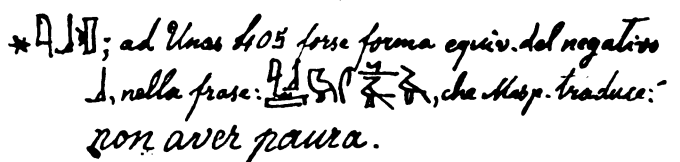 ; ad Unas 405 forse forma equiv. del negativo
, nella frase: , che Masp. traduce:
non aver paura.